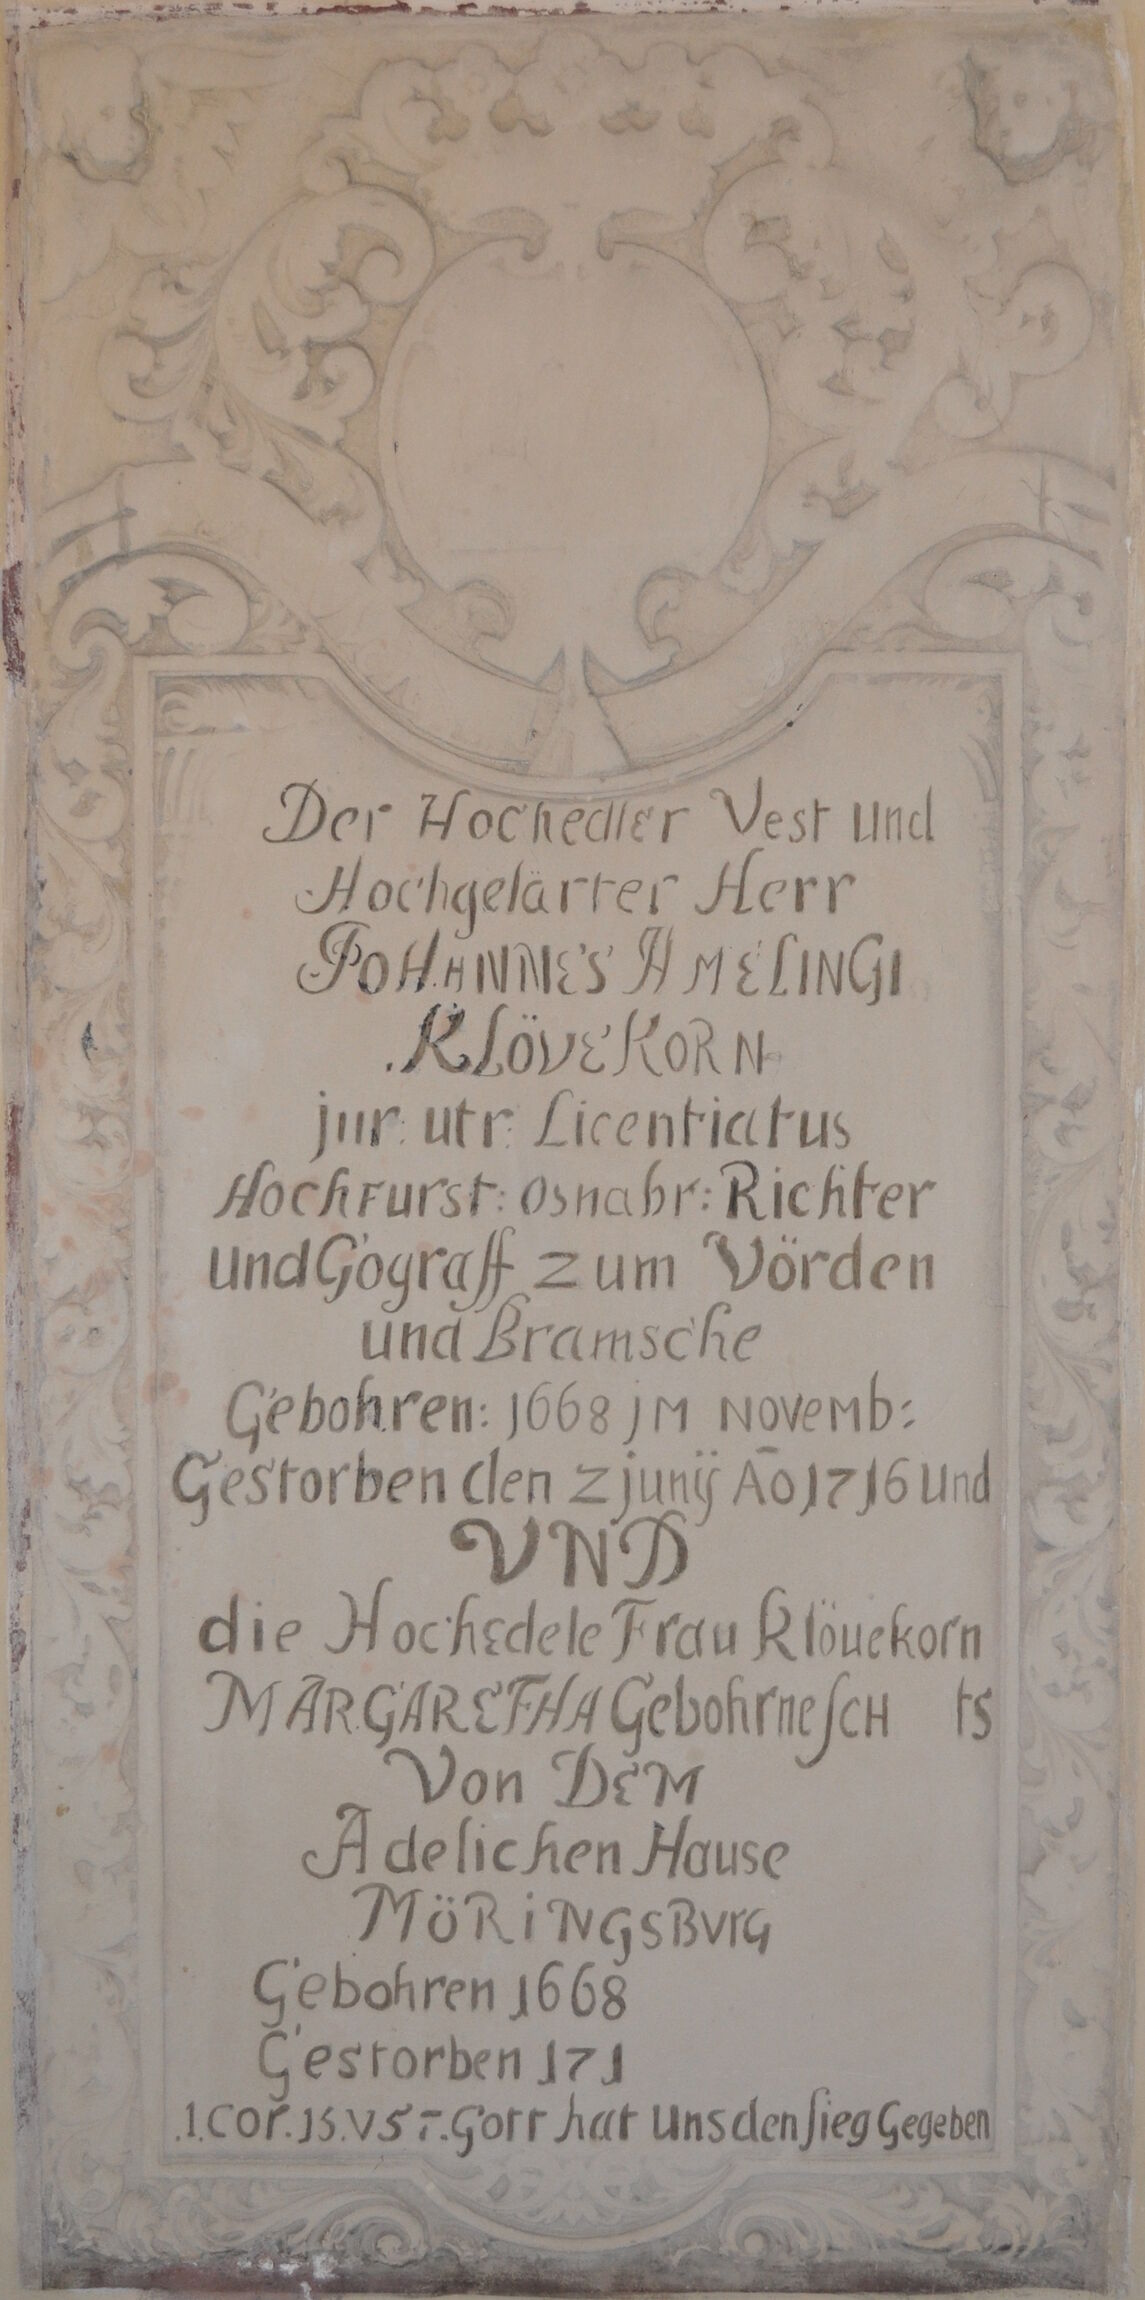 Der Hochedler Vest und
Hochgelärter Herr
JOHANNES AMELINGI
KLÖVEKORN
jur: utr: Licentiatus
Hochfurst: Osnabr: Richter
und Gograff zum Vörden
und Bramsche
Gebohren: 1668 jm Novemb:
Gestorben den 2 junÿ Aō 1716 und
VND
die Hochedele Frau Klöuekorn
MARGARETHA Gebohrne SCH ts
Von DEM
Adelichen Hause
MÖRiNGSBVrG
Gebohren 1668
Gestorben 171
.1.Cor.15.V57.Gott hat uns den sieg Gegeben